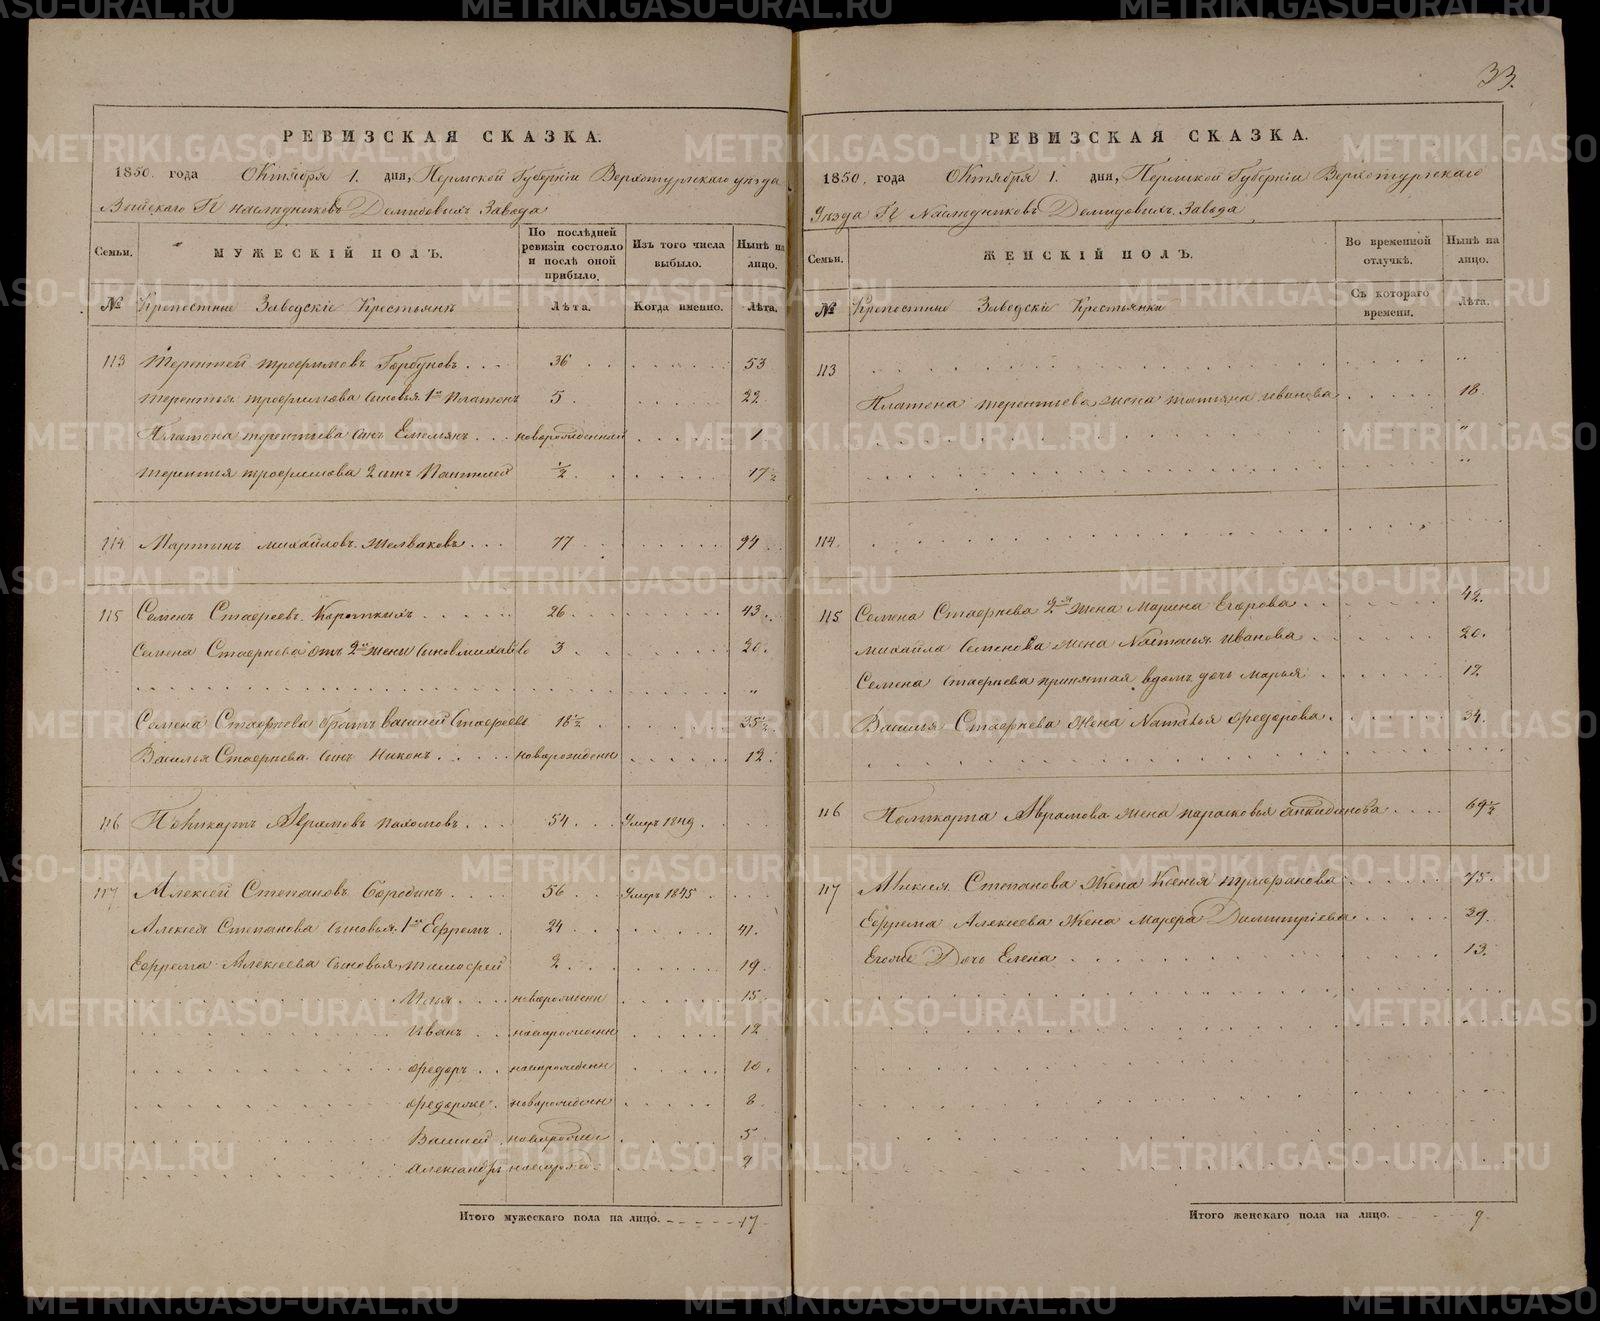 33.
РЕВИЗСКАЯ СКАЗКА.
1850. года Октября 1. дня, Пермской Губернiи Верхотурскаго уѣзда
Гг наслѣдниковъ Демидовыхъ Завода
Семьи. МУЖЕСКІЙ ПОЛЪ. По послѣдней ревизіи состояло и послѣ оной прибыло. Изъ того числа выбыло. Нынѣ на лицо.
№ Крепостные Заводскiе Крестьянѣ Лѣта. Когда именно. Лѣта.
113 Терентей трофимовъ Горбуновъ 36 53
терентья трофимова сыновья 1й Платонъ 5 22
Платона терентьева сынъ Емельянъ новорожденный 1
терентья трофимова 2 сынъ Пантелей ½ 17½
114 Мартынъ михайловъ Желваковъ 77 94
115 Семенъ Стафеевъ Короткихъ 26 43
Семена Стафеева отъ 2й жены сынъ михайло 3 20.
Семена Стафеева братъ василей Стафеевъ 18½ 35½
Василья Стафеева сынъ Никонъ новорожденн 12.
116 Поликарпъ Аврамовъ пахомовъ 54 Умеръ 1849
117 Алексей Степановъ Бородинъ 56 Умеръ 1845
Алексея Степанова сыновья 1й Ефремъ 24 41.
Ефрема Алексеева сыновья тимофей 2 19
Илья новорожденн 15
Иванъ новорожденн 12
Федоръ новорожденн 10.
Федорже новорожденн 8
Василей новорожден 5
Александръ новорожд 2
Итого мужескаго пола на лицо. 17
РЕВИЗСКАЯ СКАЗКА.
1850. года Октября 1. дня, Пермской Губернiи Верхотурскаго
Уѣзда Гг Наслѣдниковъ Демидовыхъ Завода
Семьи. ЖЕНСКІЙ ПОЛЪ. Во временной отлучкѣ. Нынѣ на лицо.
№ Крепостные Заводскiе Крестьянки Съ котораго времени. Лѣта.
113
Платона терентьева жена татьяна иванова 18
114
115 Семена Стафеева 2я жена Марина Егорова 42.
михайла Семенова жена Настасья иванова 20.
Семена Стафеева принятая въ домъ дочь марья 12
Василья Стафеева жена Наталья Федорова 34.
116 Поликарпа Аврамова жена парасковья 69½
117 Алексея Степанова Жена Ксенья 75.
Ефрема Алексеева Жена Марфа Димитрiева 39
Егоже Дочь Елена 13.
Итого женскаго пола на лицо. 9
METRIKI.GASO-URAL.RU